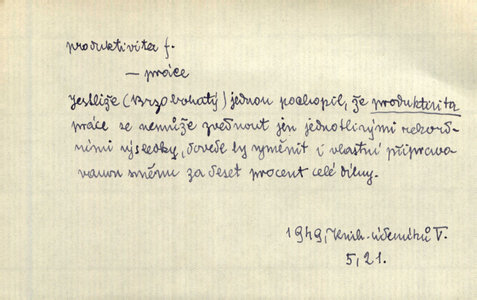 produktivita f.
— práce
Jestliže (Brzobohatý) jednou pochopil, že produktivita
práce se nemůže zvednout jen jednotlivými rekord-
ními výsledky, dovede by vyměnit i vlastní připravo-
vanou směnu za deset procent celé dílny.
1949, Knih. úderníků V.
5, 21.